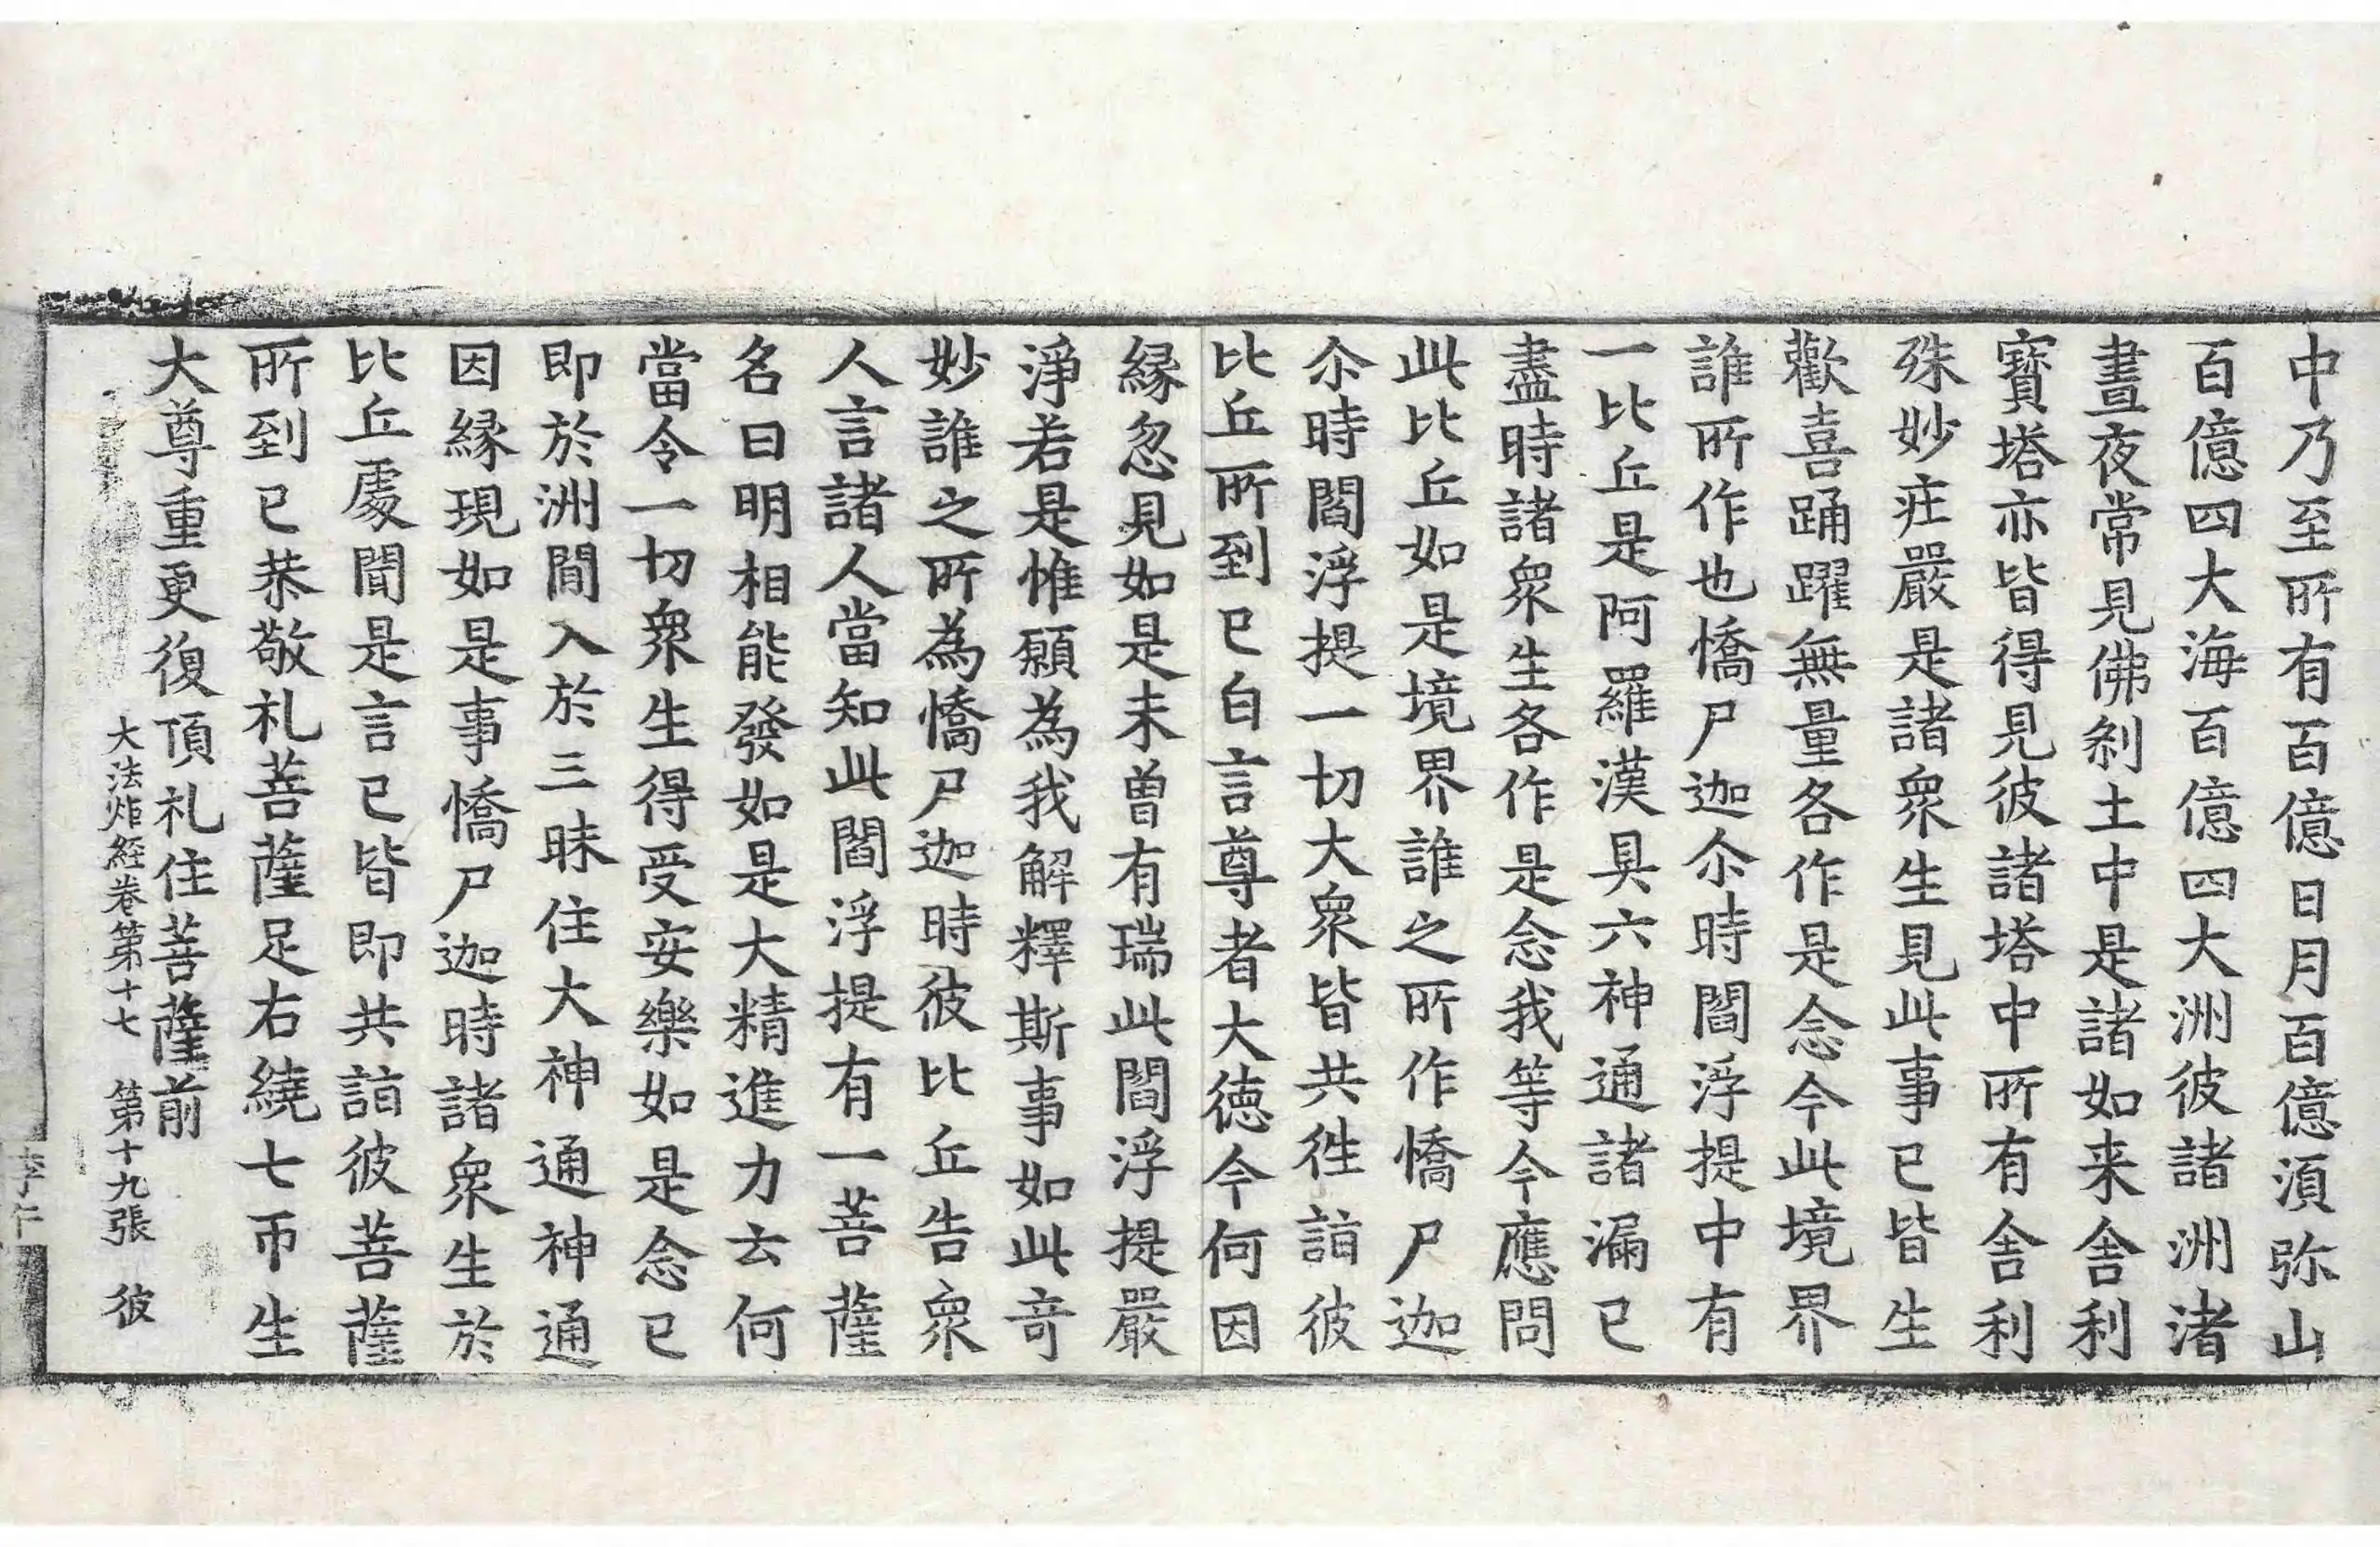 中乃至所有百億日月百億湏弥山
百億四大海百億四大洲彼諸洲渚
晝夜常見佛剎土中是諸如来舍利
寶塔亦皆得見彼諸塔中所有舍利
殊妙莊嚴是諸衆生見此事已皆生
歡喜踊躍無量各作是念今此境界
誰所作也憍尸迦尒時閻浮提中有
一比丘是阿羅漢具六神通諸漏已
盡時諸衆生各作是念我等今應問
此比丘如是境界誰之所作憍尸迦
尒時閻浮提一切大衆皆共徃詣彼
比丘所到已白言尊者大德今何因
縁忽見如是未曾有瑞此閻浮提嚴
淨若是惟願為我解釋斯事如此奇
妙誰之所為憍尸迦時彼比丘告衆
人言諸人當知此閻浮提有一菩薩
名曰明相能發如是大精進力云何
當令一切衆生得受安樂如是念已
即於洲間入於三昧住大神通神通
因縁現如是事憍尸迦時諸衆生於
比丘處聞是言已皆即共詣彼菩薩
所到已恭敬礼菩薩足右繞七帀生
大尊重更復頂礼住菩薩前
大法炬経卷第十七 第十九張 彼
李仁